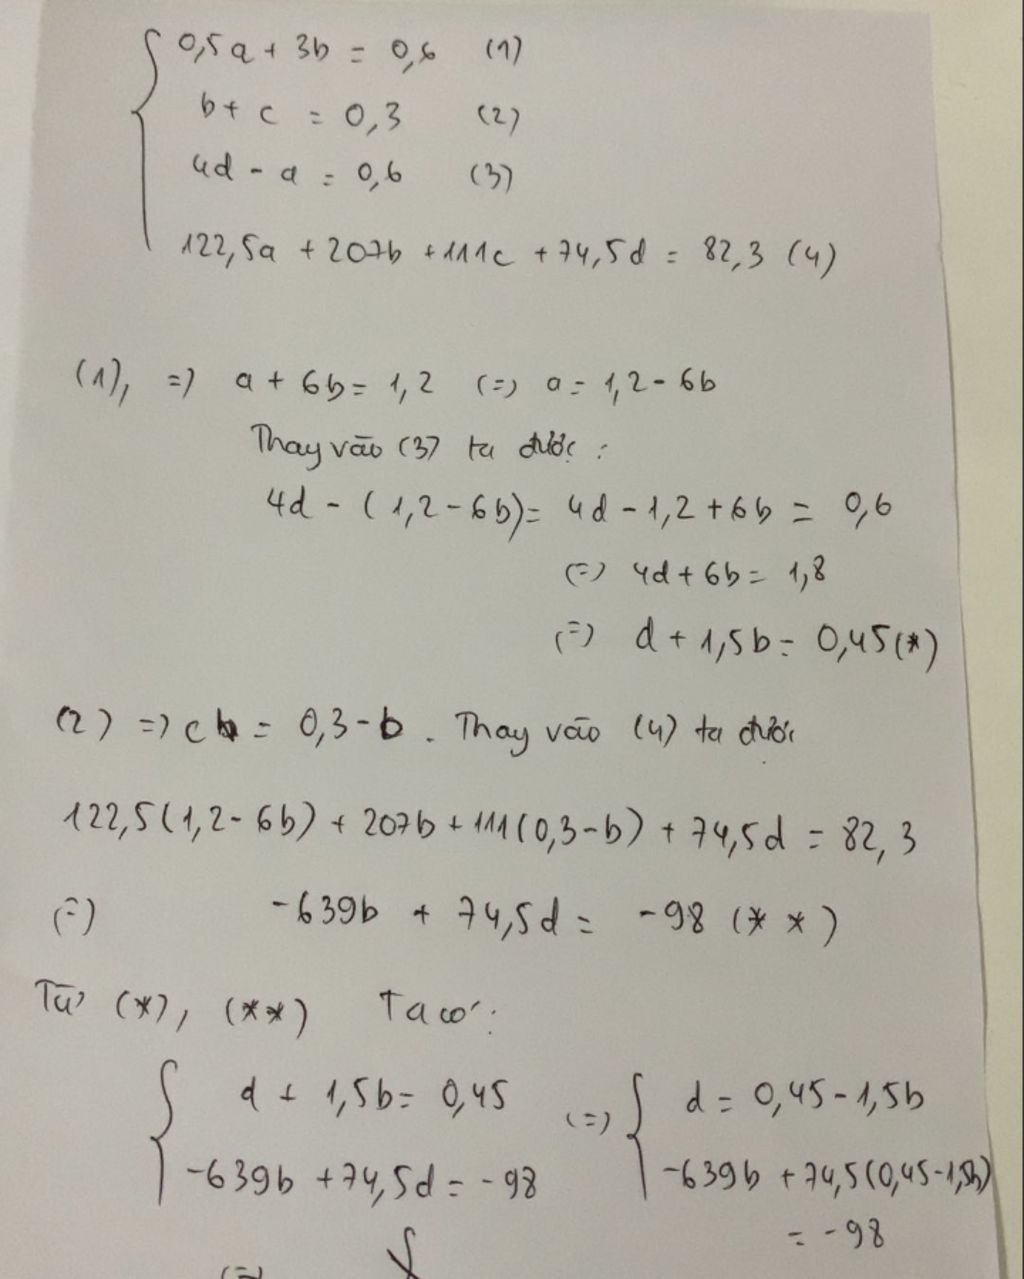 0,5a + 3b = 0,6 (1)
b + c = 0,3 (2)
4d - a = 0,6 (3)
122,5a + 207b + 111c + 74,5d = 82,3 (4)
(1), => a + 6b = 1,2 (=) a = 1,2 - 6b
Thay vào (3) ta được :
4d - (1,2 - 6b) = 4d - 1,2 + 6b = 0,6
(=) 4d + 6b = 1,8
(=) d + 1,5b = 0,45 (*)
(2) => c = 0,3 - b . Thay vào (4) ta được
122,5(1,2 - 6b) + 207b + 111(0,3 - b) + 74,5d = 82,3
(=) -639b + 74,5d = -98 (**)
Từ (*), (**) Ta có :
d + 1,5b = 0,45 (=) d = 0,45 - 1,5b
-639b + 74,5d = -98 -639b + 74,5(0,45 - 1,5b)
= -98
(=)